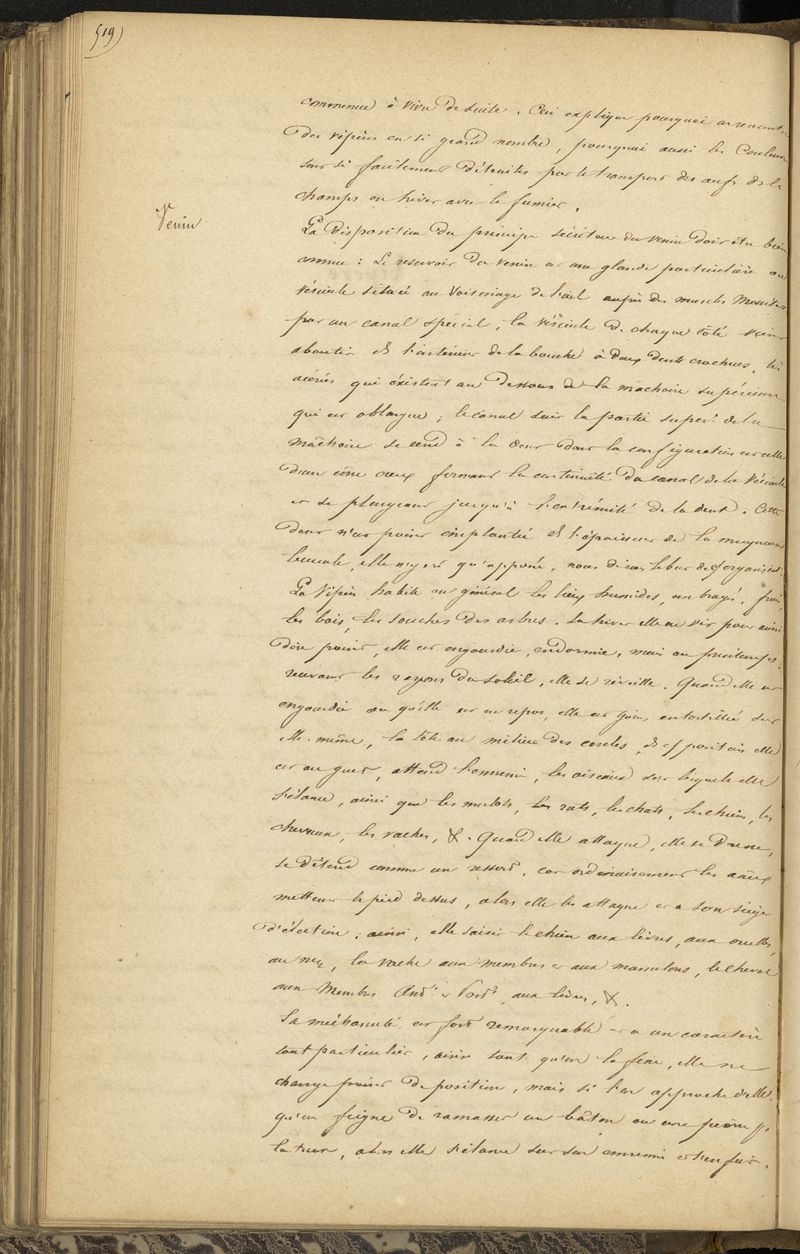 519)
commence à vivre de suite. Ceci explique pourquoi on rencontre
des vipères en si grand nombre, pourquoi aussi les Couleuvres
sont si facilement détruites par le transport des œufs de la
champs en hiver avec le fumier.
Venin
La disposition du principe sécréteur du venin doit être bien
connue : Le reservoir du venin est une glande particulière ou
vésicule située au voisinage de l'œil auprès des muscles
par un canal spécial, la vésicule de chaque côté vient
aboutir à l'intérieur de la bouche à deux dents crochues, très
acérées qui éxistent au dessous de la machoire supérieure
qui est oblongue ; le canal suit la partie super.e de la
mâchoire se rend à la dent dont la configuration est celle
d'un cône creux formant la continuité du canal de la vésicule
et se plongeant jusqu'à l'extrémité de la dent. Cette
dent n'est point implantée à l'épaisseur de la muqueuse
buccale, elle n'y est qu'apposée, nous dirons le but de l'organisat.
La Vipère habite en général les lieux humides, ombragés, frais,
les bois, les souches des arbres. En hiver elle ne vit pour ainsi
dire point, elle est engourdie, endormie, mais au printemps
recevant les rayons du soleil, elle se réveille. Quand elle est
engourdie ou qu'elle est en repos, elle est entortillée sur
elle-même, la tête au milieu des cercles, de position elle
est au guet, attend l'ennemi, les oiseaux sur lesquels elle
s'élance, ainsi que les mulots, les rats, les chats, les chiens, les
chevaux, les vaches, &. Quand elle attaque, elle se dresse,
se détend comme un ressort, car ordinairement les aâux
mettent le pied dessus, alors elle les attaque et a son siège
d'élection ; ainsi, elle saisit le chien aux lèvres, aux oreilles,
au nez, la vache aux membres & aux mamelons, le cheval
aux Membres Ant.rs & Post.rs, aux lèvres, &.
Sa méchanceté est fort remarquable et a un caractère
tout particulier, ainsi tant qu'on la fixe, elle ne
change point de position, mais si l'on approche d'elle,
qu'on feigne de ramasser un bâton ou une pierre p.r
la tuer, alors elle s'élance sur son ennemi et s'enfuit.